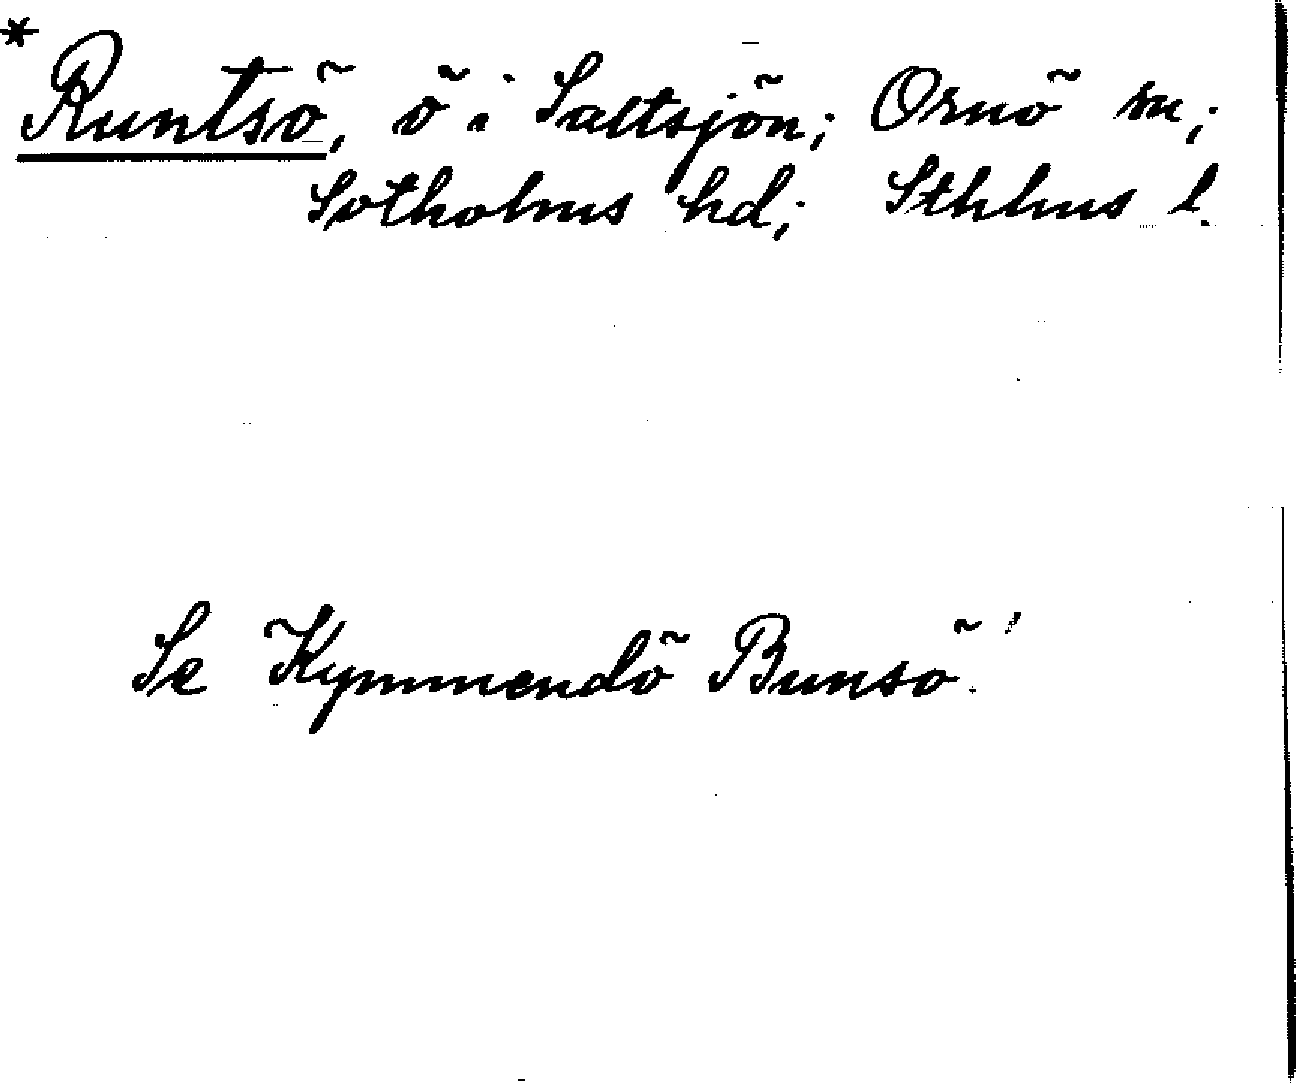 * Runtsö, ö i Saltsjön; Ornö sn;
Sotholms hd; Sthlms l.
Se Kymmendö Bunsö!